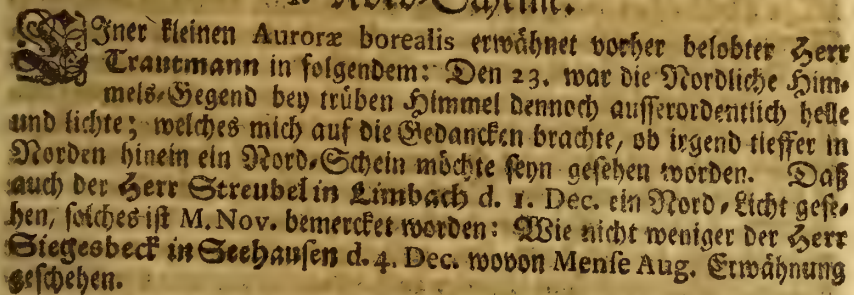 Nord-Schein.
EIner kleinen Auroræ borealis erwähnet vorher belobter Herr
Trautmann in folgendem: Den 23. war die Nordliche Him-
mels-Gegend bey trüben Himmel dennoch ausserordentlich helle
und lichte; welches mich auf die Gedancken brachte, ob irgend tieffer in
Norden hinein ein Nord-Schein möchte seyn gesehen worden. Daß
auch der Herr Streubel in Limbach d. 1. Dec. ein Nord-Licht gese-
hen, solches ist M. Nov. bemercket worden: Wie nicht weniger der Herr
Siegesbeck in Seehausen d. 4. Dec. wovon Mense Aug. Erwähnung
geschehen.